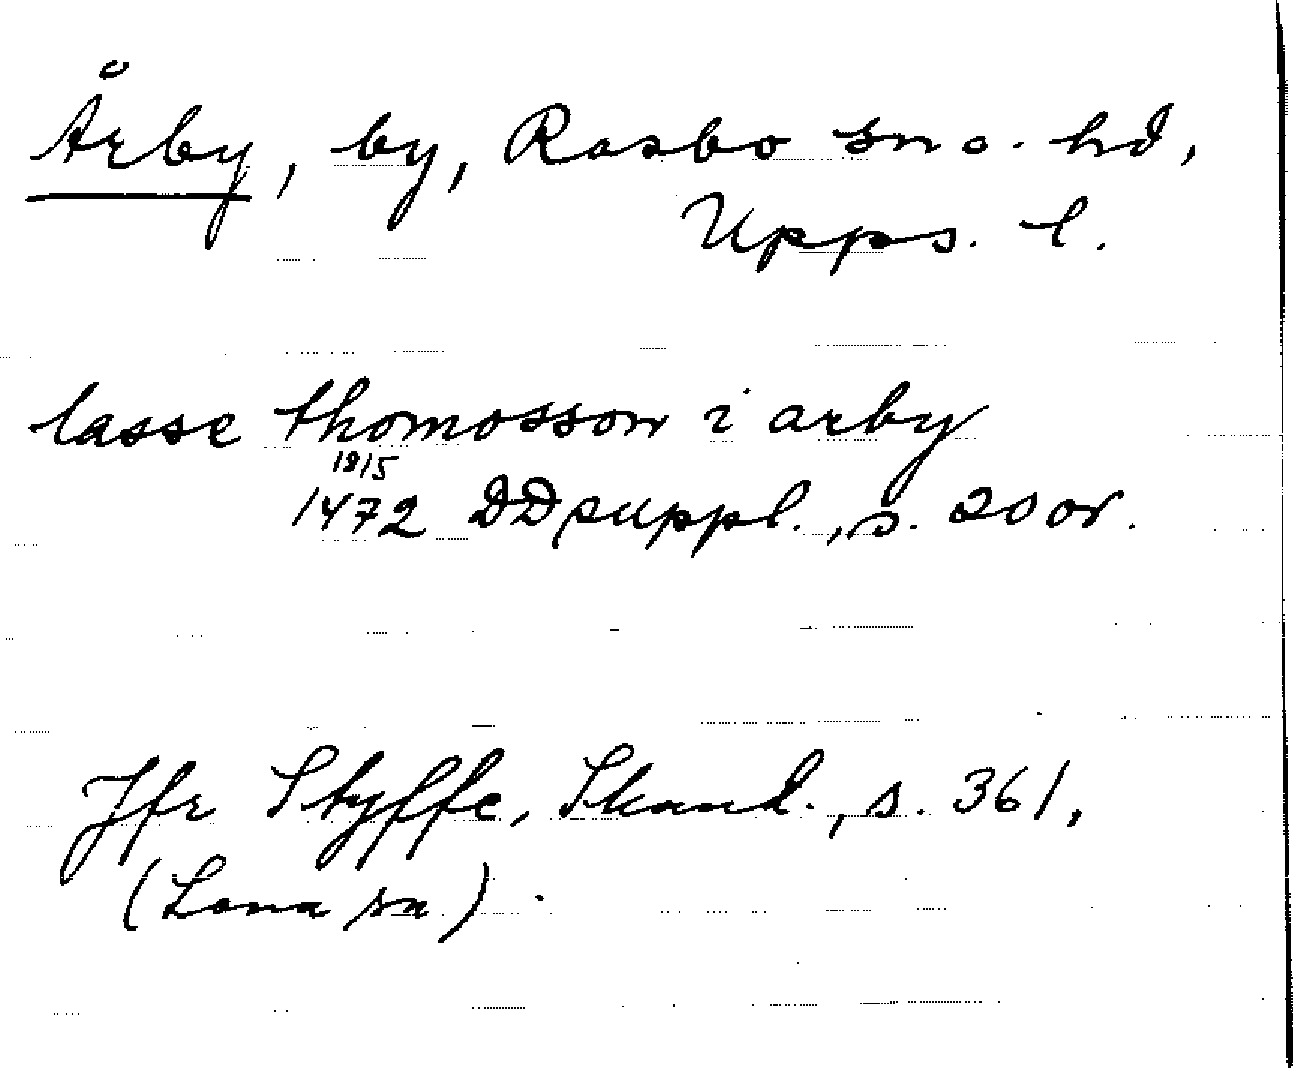 Årby, by, Rasbo sn o. hd,
Upps. l.
lasse thomosson i arby
18/5
1472 DDsuppl., s. 20 or.
Jfr Styffe, Skand., s. 361,
(Lana sn).